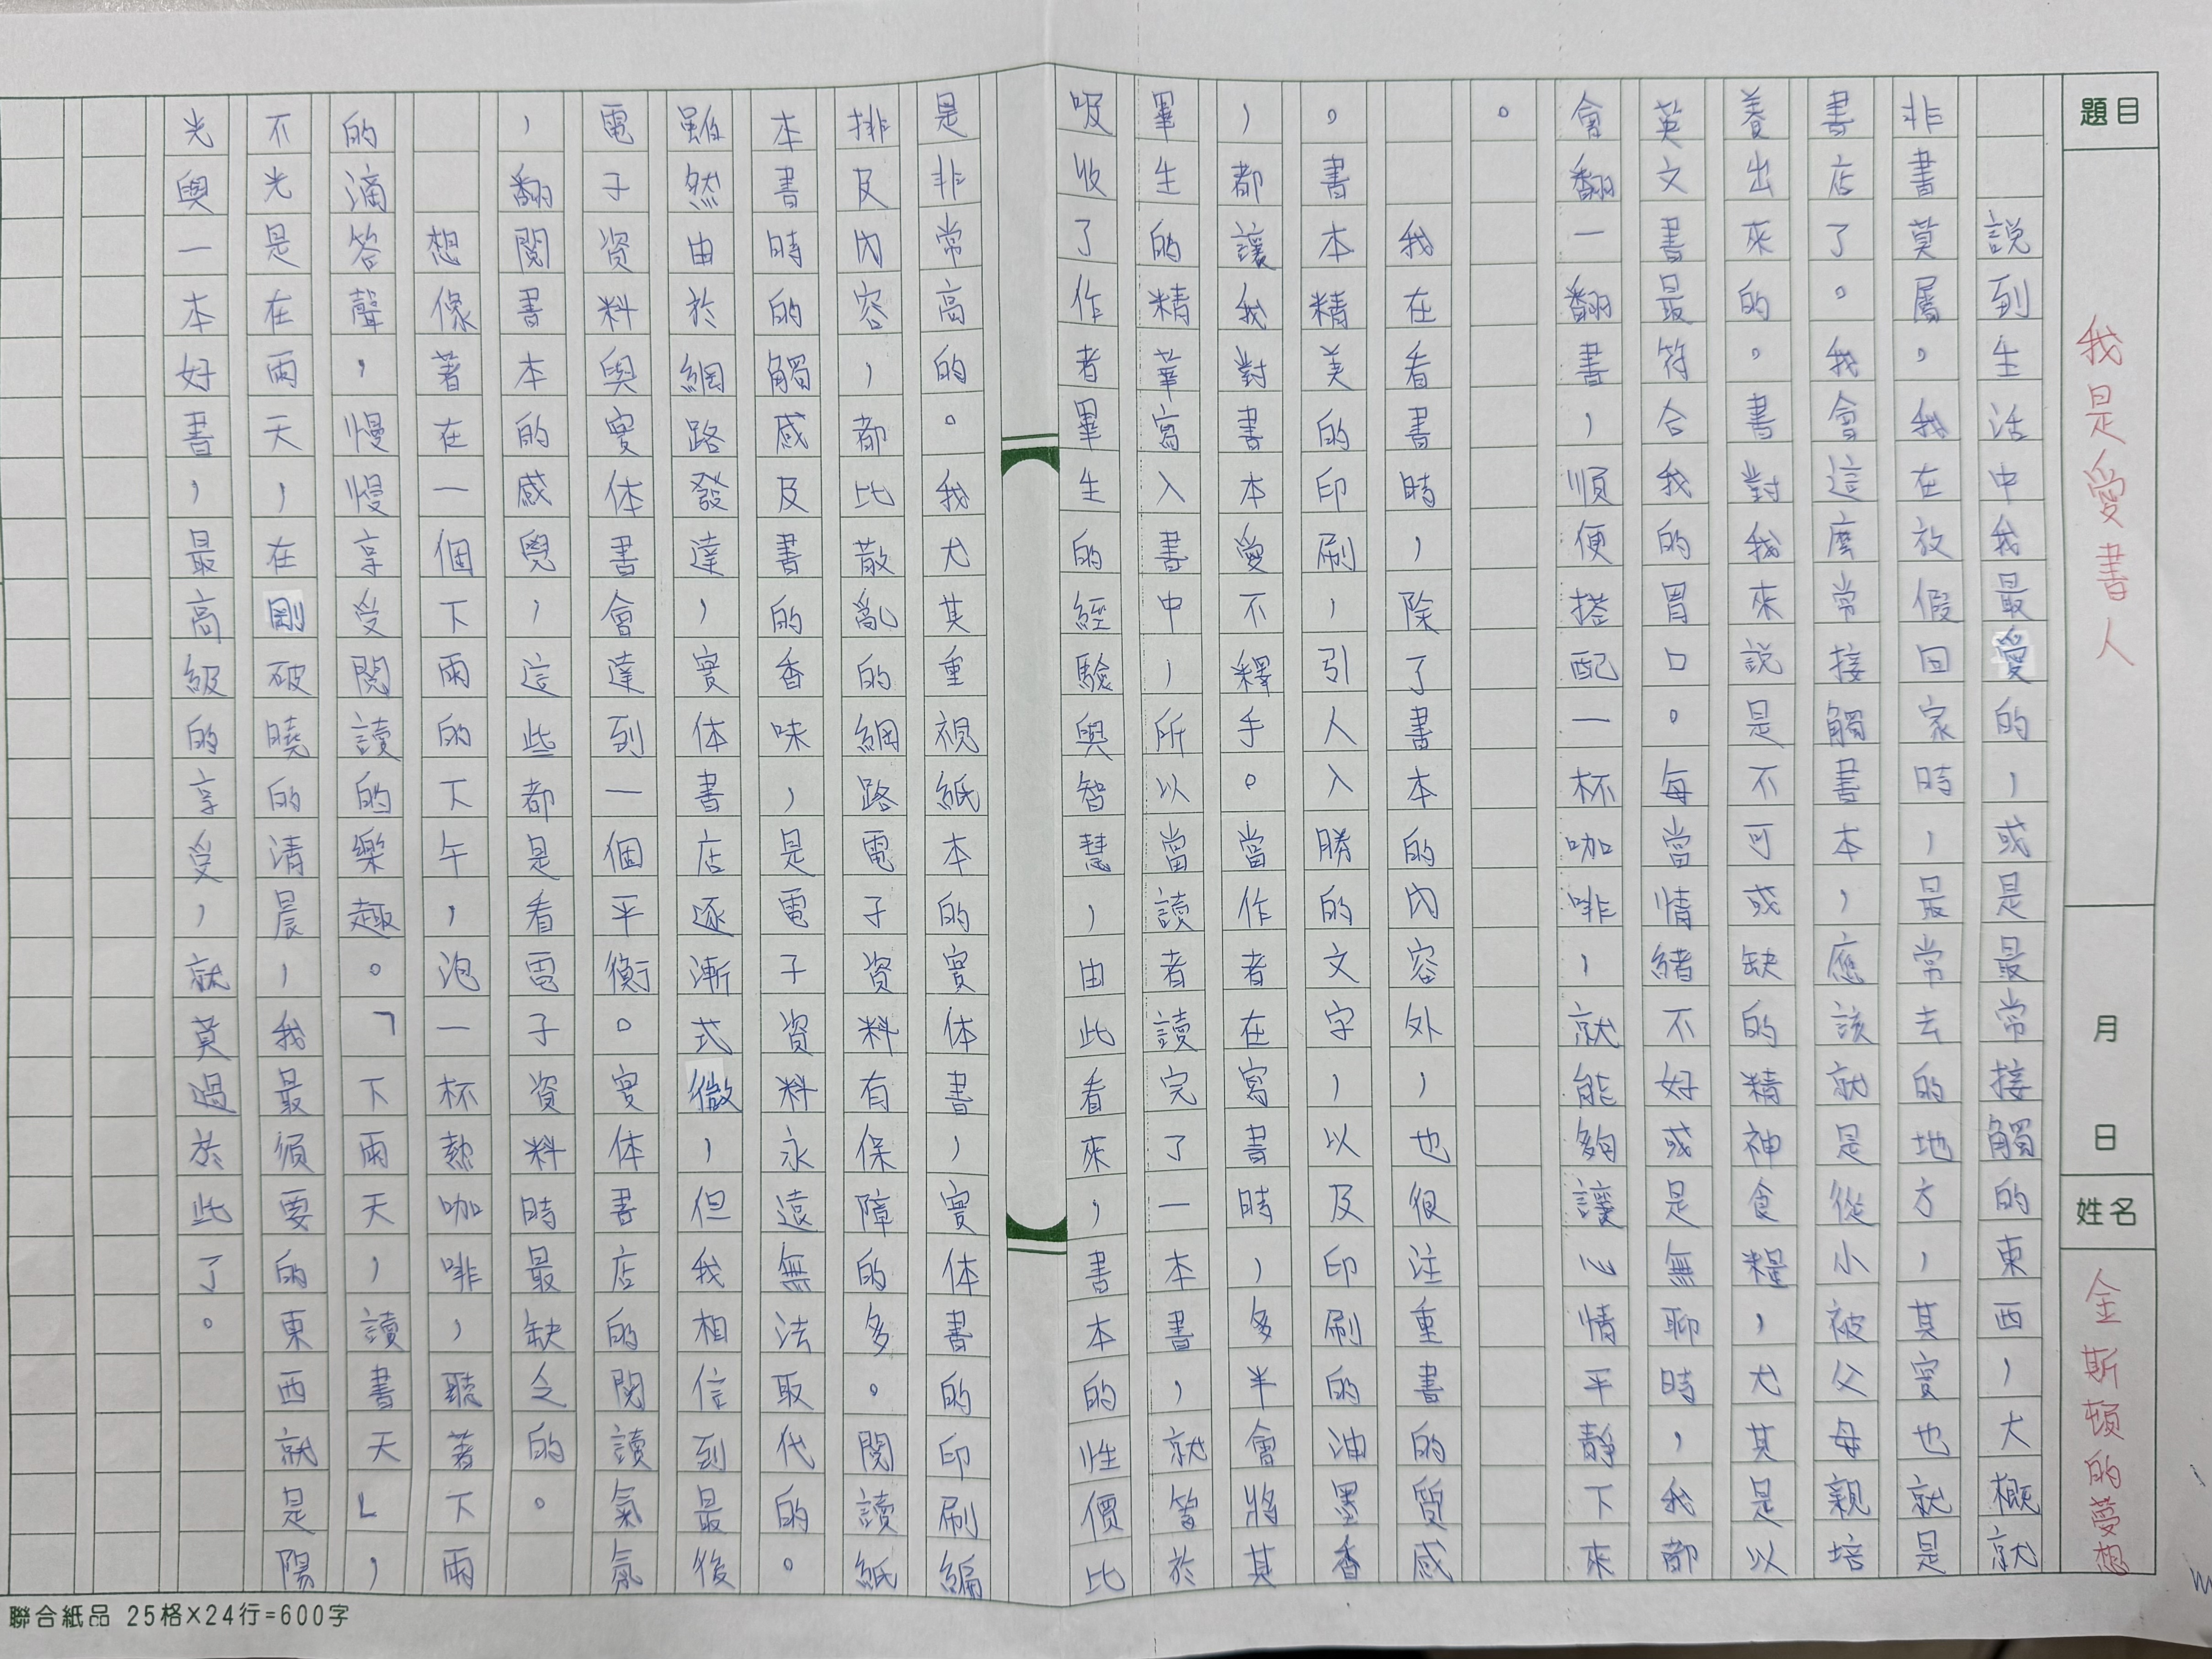 題目
我是愛書人
月 日
姓名
金斯頓的夢想
說到生活中我最愛的，或是最常接觸的東西，大概就
非書莫屬。我在放假回家時，最常去的地方，其實也就是
書店了。我會這麼常接觸書本，應該就是從小，被父母親培
養出來的。書對我來說是不可或缺的精神食糧，尤其是以
英文書最符合我的胃口。每當情緒不好或是無聊時，我都
會翻一翻書，順便搭配一杯咖啡，就能夠讓心情平靜下來
。
我在看書時，除了書本的內容外，也很注重書的質感
。書本精美的印刷，引人入勝的文字，以及印刷的油墨香
，都讓我對書本愛不釋手。當作者在寫書時，多半會將其
畢生的精華寫入書中，所以當讀者讀完了一本書，就等於
吸收了作者畢生的經驗與智慧，由此看來，書本的性價比
是非常高的。我尤其重視紙本的實体書，實体書的印刷編
排及內容，都比散亂的網路電子資料有保障的多。閱讀紙
本書時的觸感及書的香味，是電子資料永遠無法取代的。
雖然由於網路發達，實体書店逐漸式微，但我相信到最後
電子資料與實体書會達到一個平衡。實体書店的閱讀氣氛
，翻閱書本的感覺，這些都是看電子資料時最缺乏的。
想像著在一個下雨的下午，泡一杯熱咖啡，聽著下雨
的滴答聲，慢慢享受閱讀的樂趣。「下雨天，讀書天」，
不光是在雨天，在剛破曉的清晨，我最須要的東西就是陽
光與一本好書，最高級的享受，就莫過於此了。
聯合紙品 25格X24行=600字